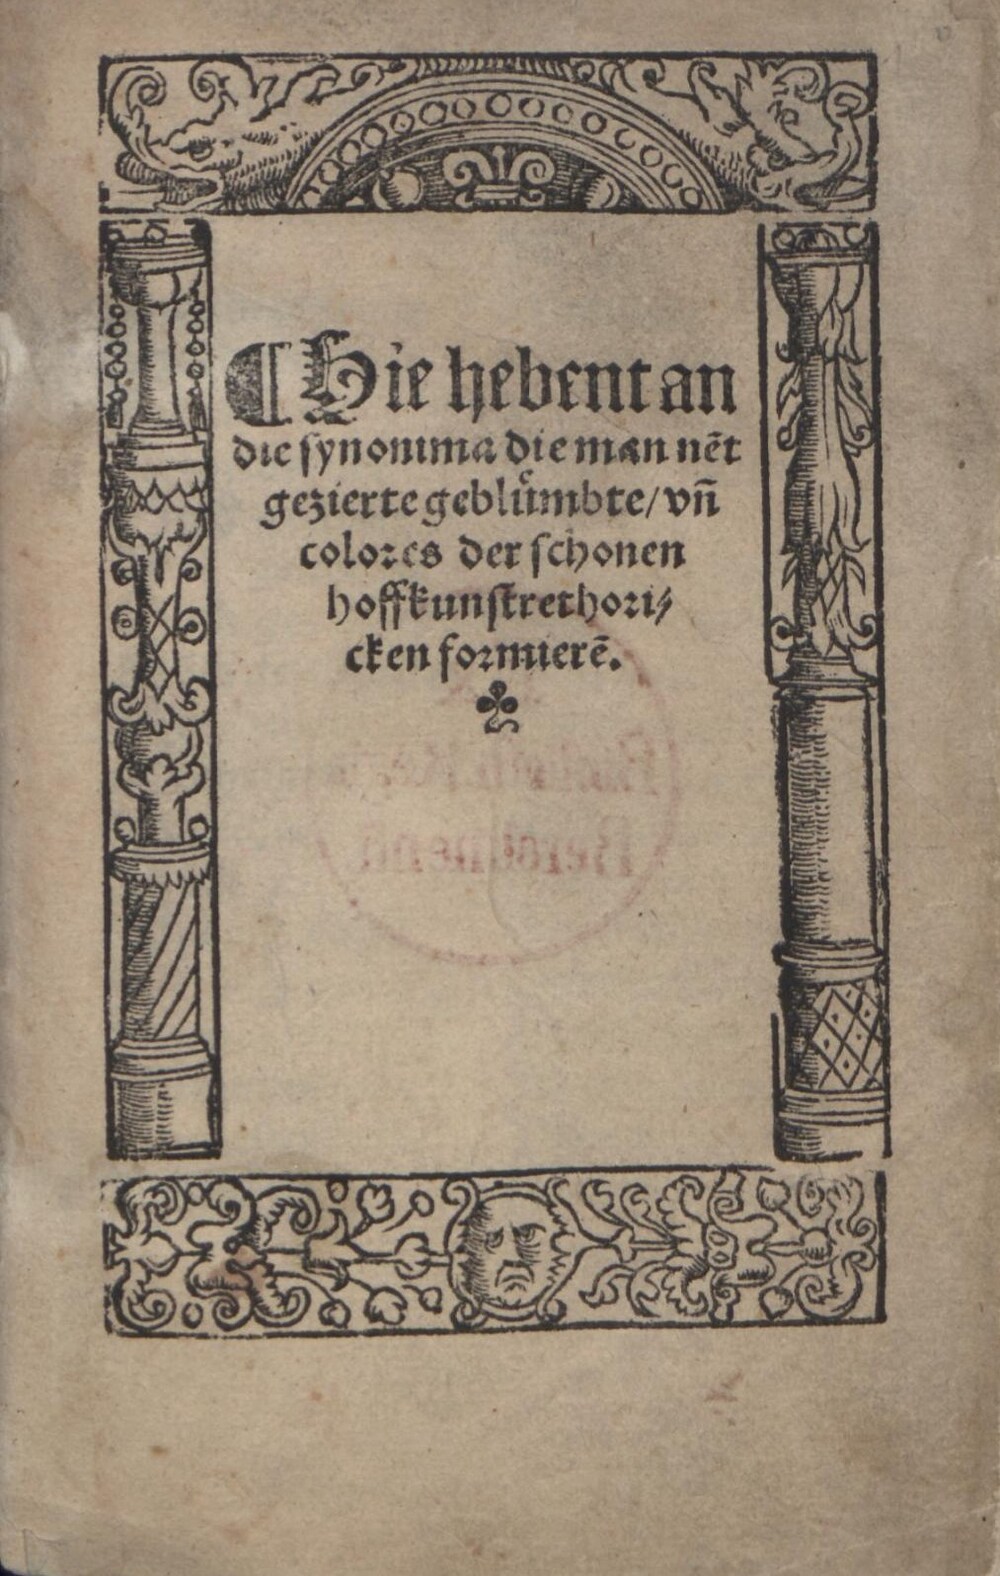 ¶ Hie hebent an
die synonima die man nẽt
gezierte gebluͤmbte/ vñ
colores der schonen
hoffkunstrethori⸗
cken formierẽ.